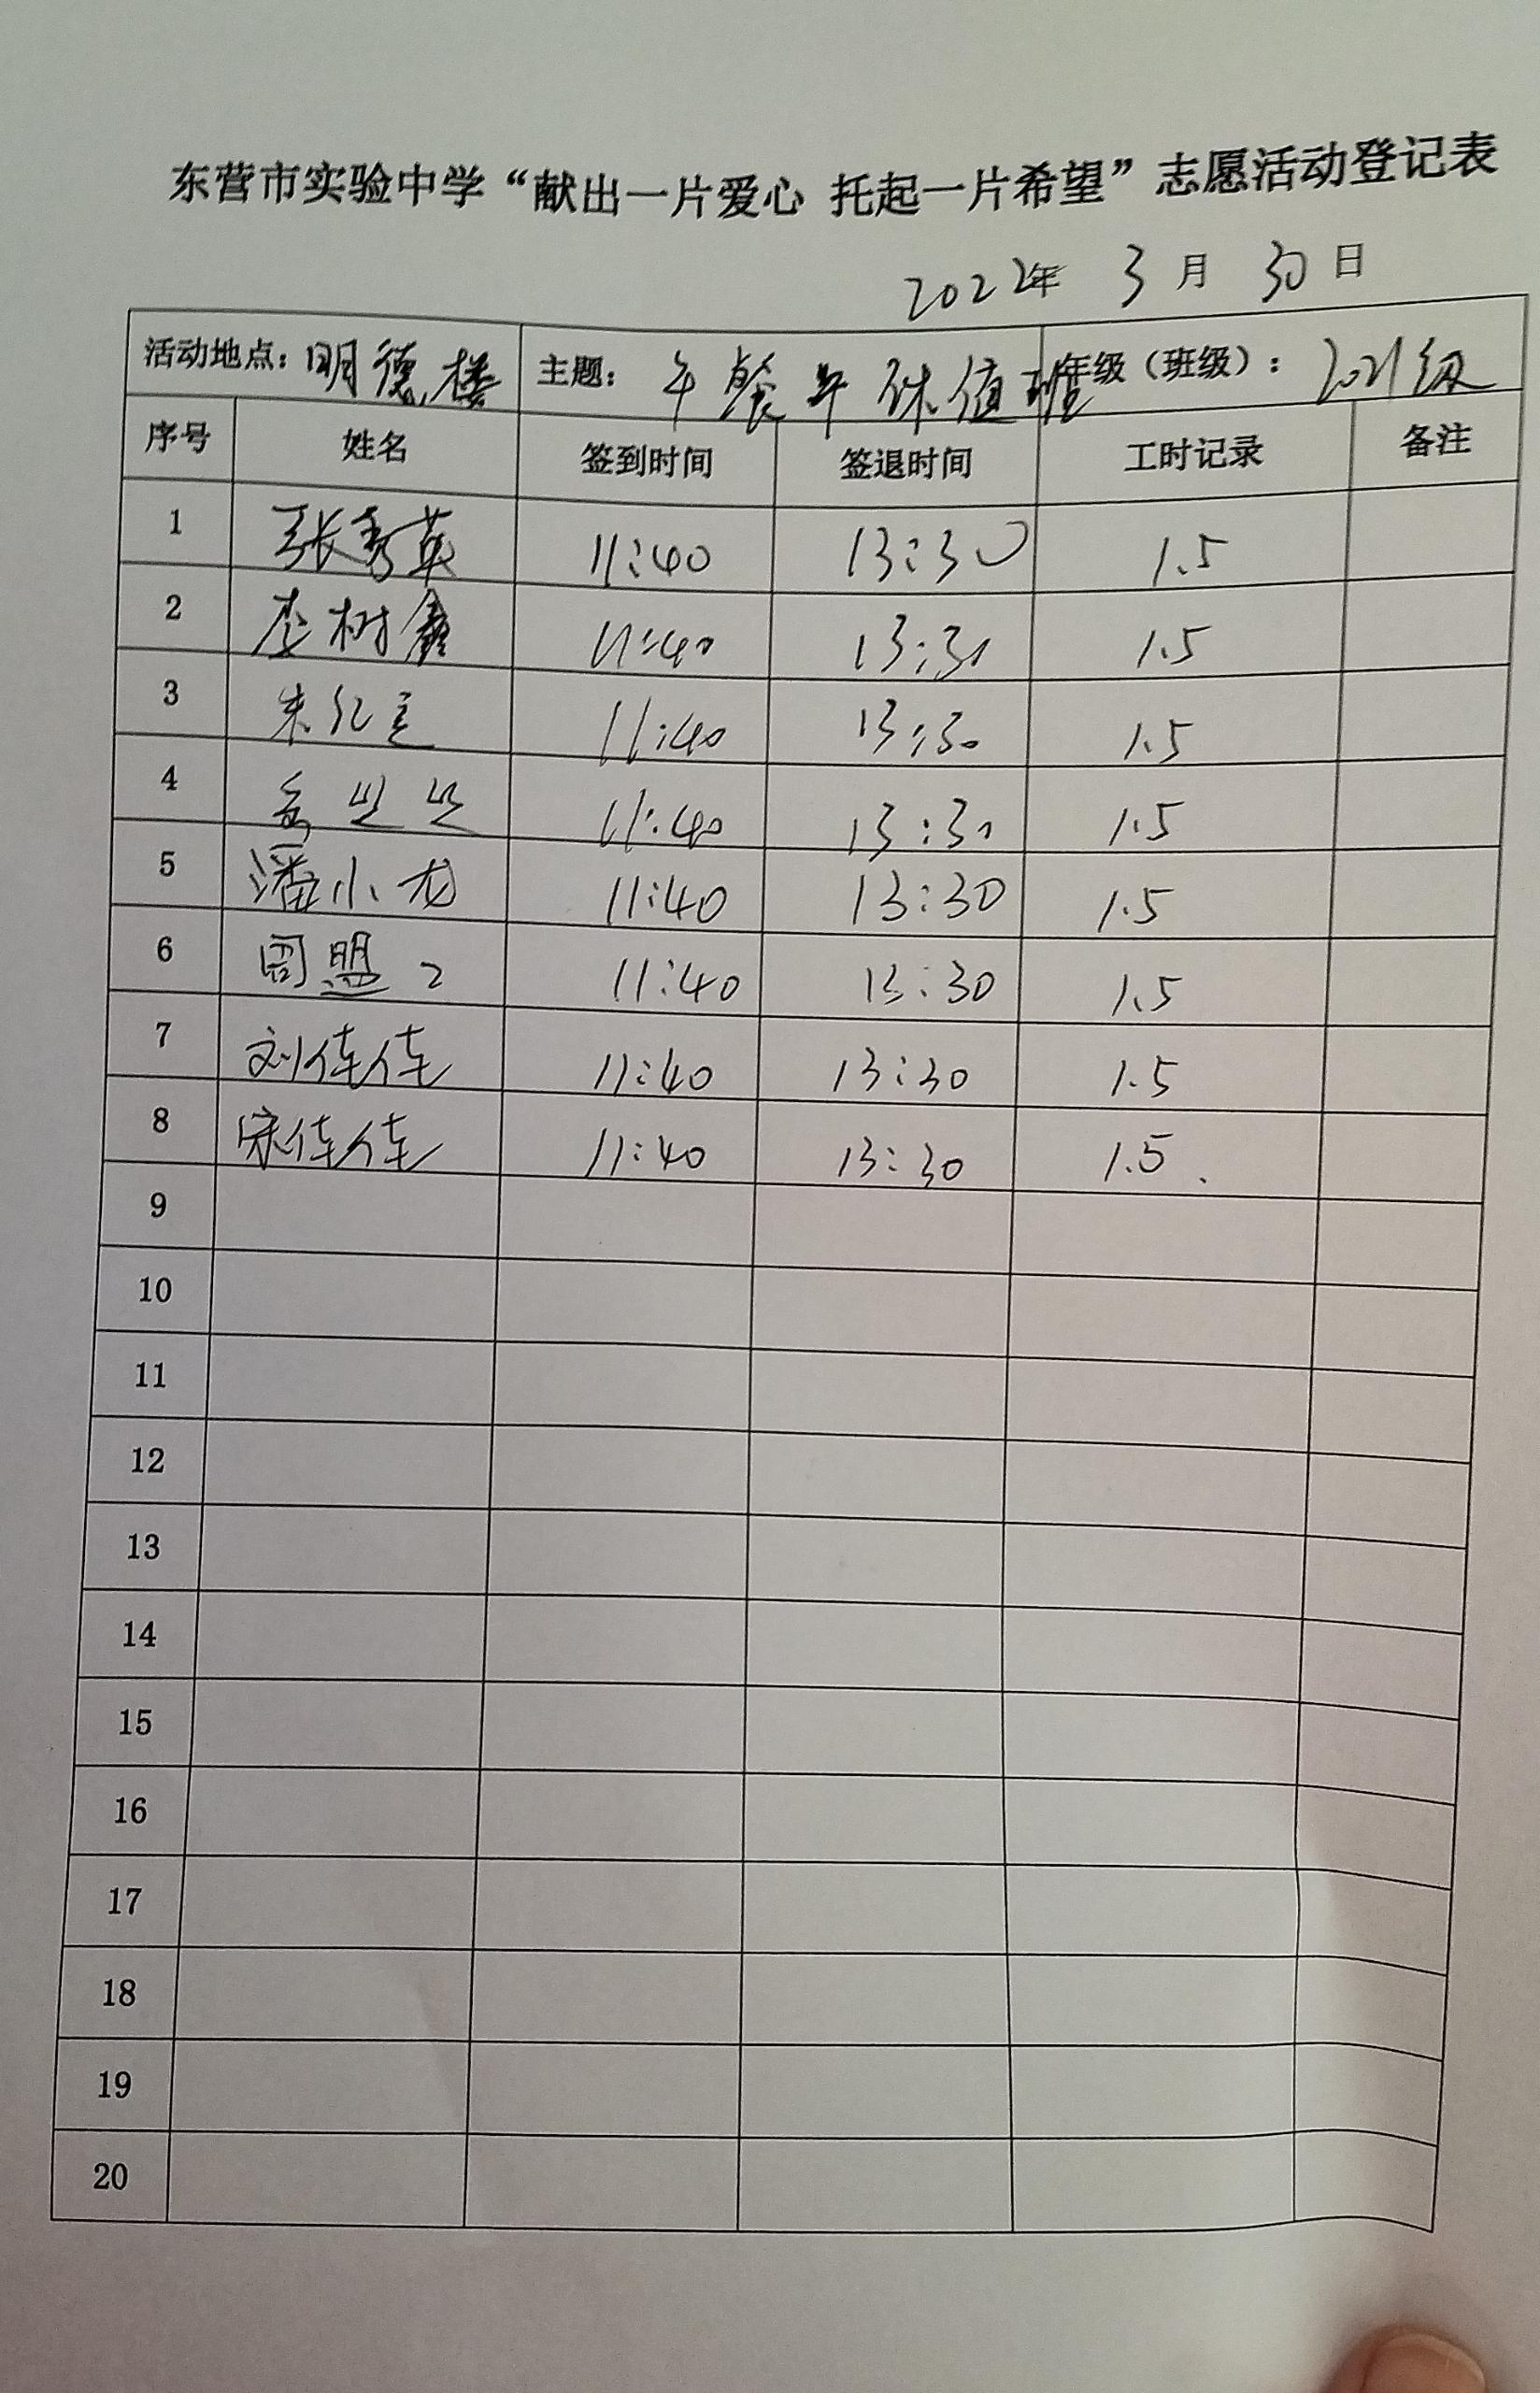 东营市实验中学“献出一片爱心 托起一片希望”志愿活动登记表
2022年 3月 30日
活动地点：明德楼 主题：午餐午休值班 年级（班级）：2021级
序号 姓名 签到时间 签退时间 工时记录 备注
1 张秀英 11:40 13:30 1.5
2 李树鑫 11:40 13:30 1.5
3 朱 11:40 13:30 1.5
4 11:40 13:30 1.5
5 潘小龙 11:40 13:30 1.5
6 周盟 11:40 13:30 1.5
7 刘佳佳 11:40 13:30 1.5
8 宋佳佳 11:40 13:30 1.5
9
10
11
12
13
14
15
16
17
18
19
20